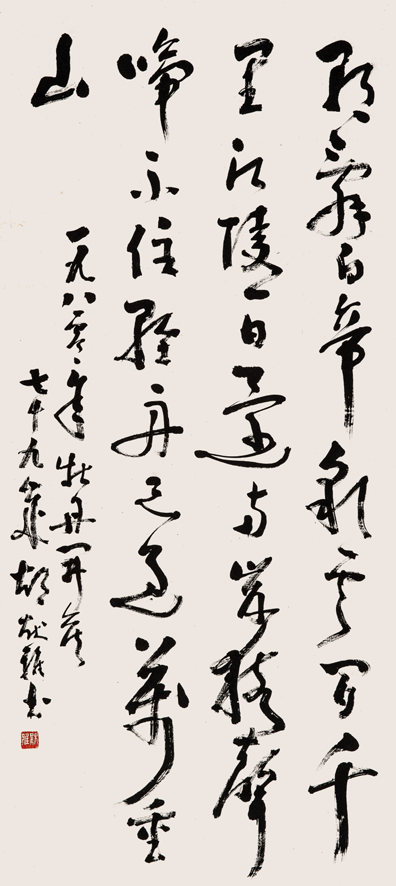 朝辭白帝彩云間千
里江陵一日還兩岸猿聲
啼不住輕舟已過萬重
山
一九八零年牡丹開候
七十九歲胡献雅書